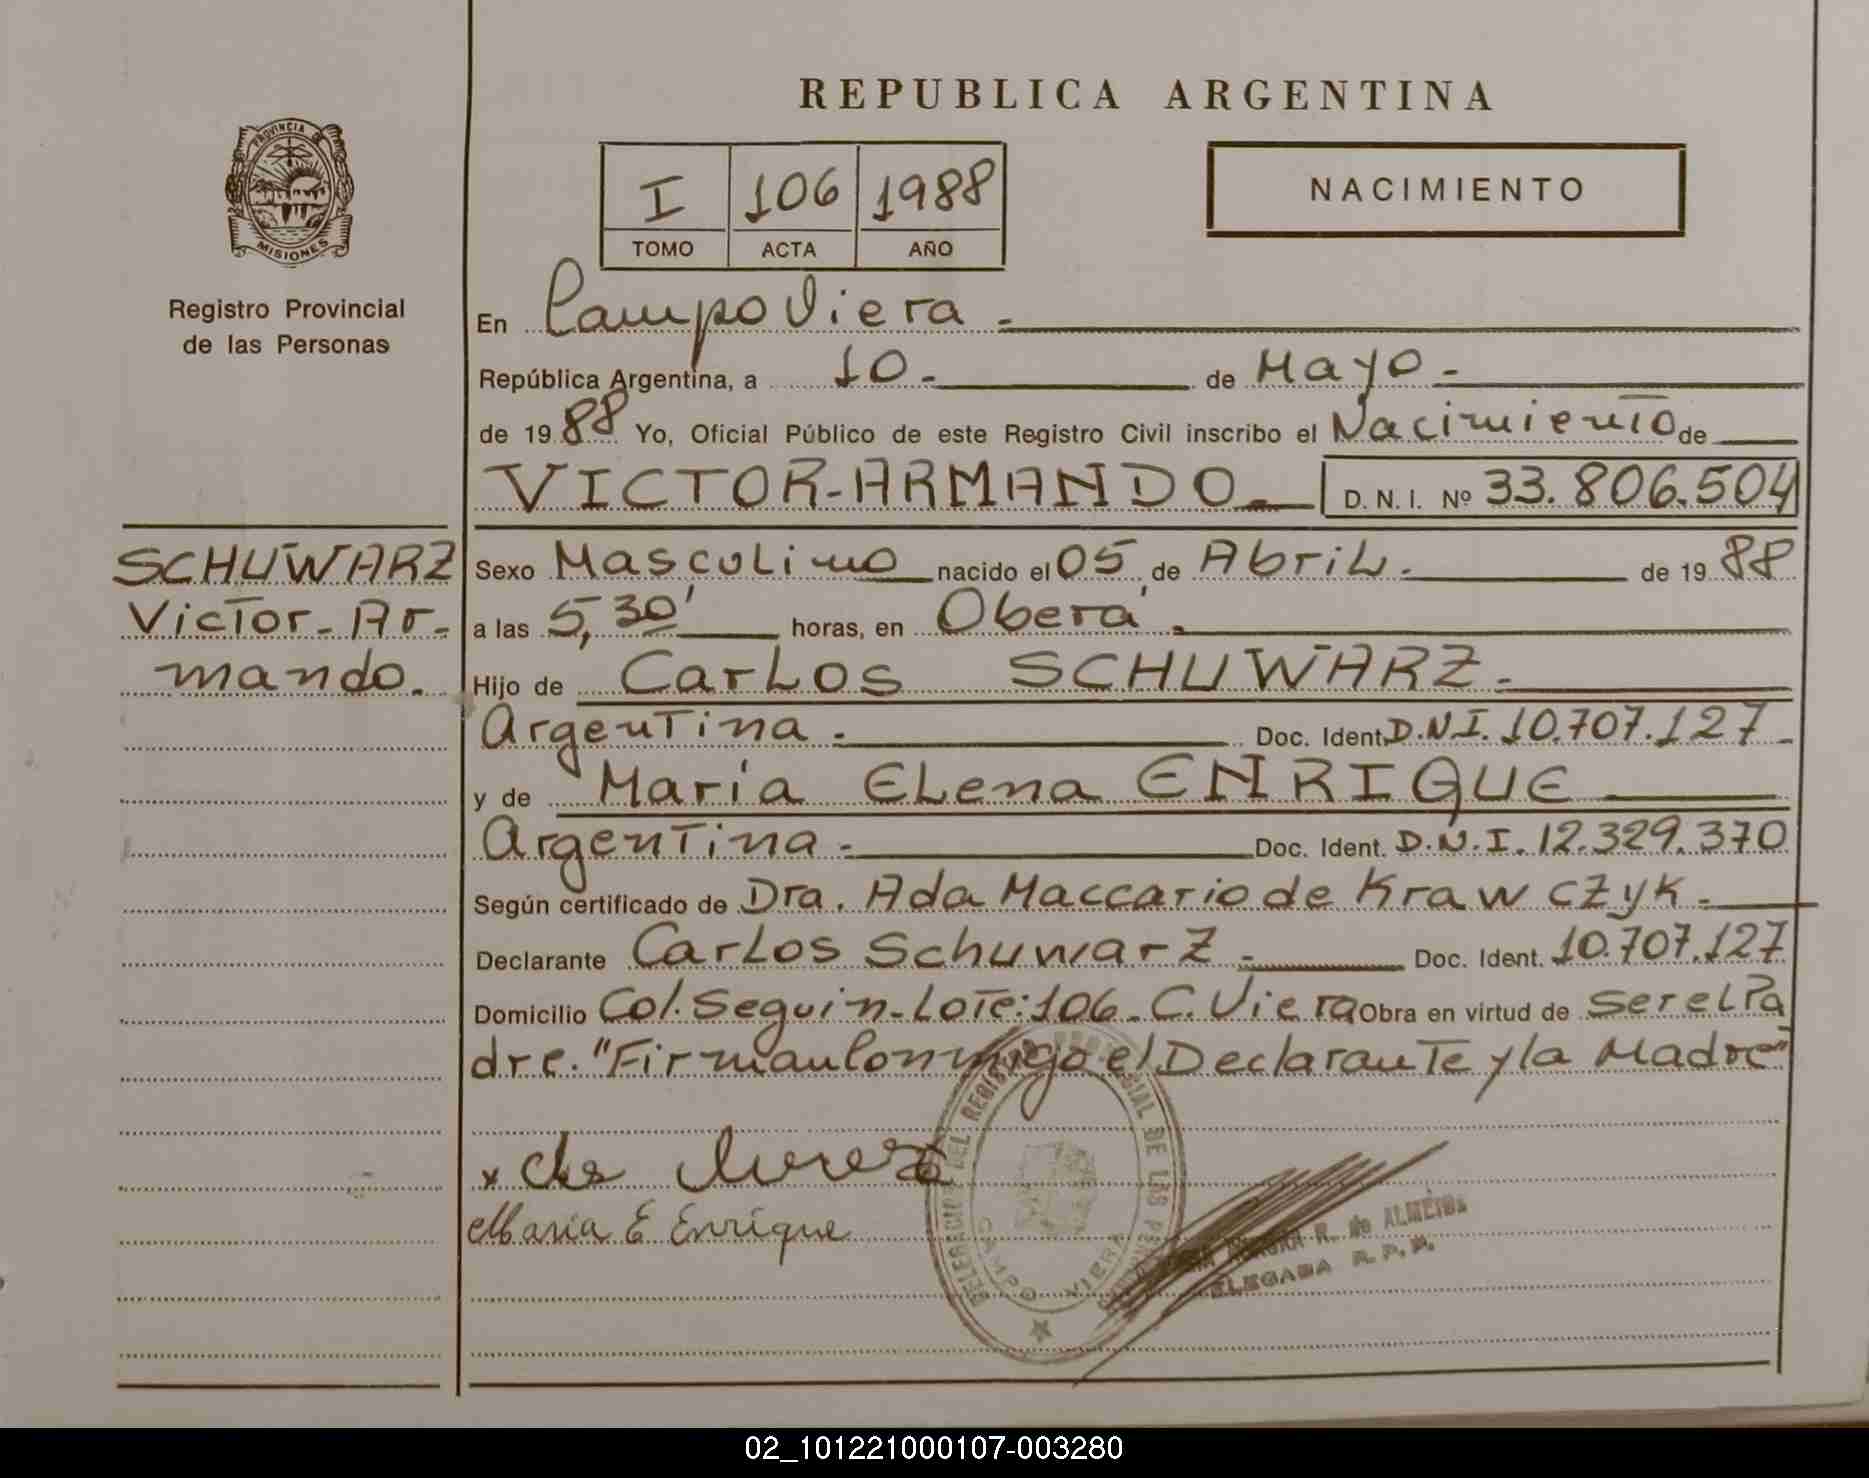 REPUBLICA ARGENTINA
PROVINCIA DE
MISIONES
Registro Provincial
de las Personas
I 106 1988
TOMO ACTA AÑO
NACIMIENTO
En Campo Viera.-
República Argentina, a 10.- de Mayo.-
de 1988 Yo, Oficial Público de este Registro Civil inscribo el Nacimiento de
VICTOR-ARMANDO.- D. N. I. Nº 33.806.504
SCHUWARZ
Victor-Ar-
mando.
Sexo Masculino nacido el 05 de Abril.- de 1988
a las 5,30' horas, en Oberá.-
Hijo de Carlos SCHUWARZ.-
Argentina.- Doc. Ident. D.N.I. 10.707.127-
y de María Elena ENRIQUE
Argentina.- Doc. Ident. D.N.I. 12.329.370
Según certificado de Dra. Ada Maccario de Krawczyk.-
Declarante Carlos Schuwarz.- Doc. Ident. 10.707.127
Domicilio Col. Seguin-Lote:106-C.Viera Obra en virtud de Ser el Pa
dre. "Firman Conmigo el Declarante y la Madre"
DELEGACION DEL REGISTRO PROVINCIAL DE LAS PERSONAS
CAMPO VIERA
María E Enrique
R. de ALMEIDA
DELEGADA R. P. P.
02_101221000107-003280